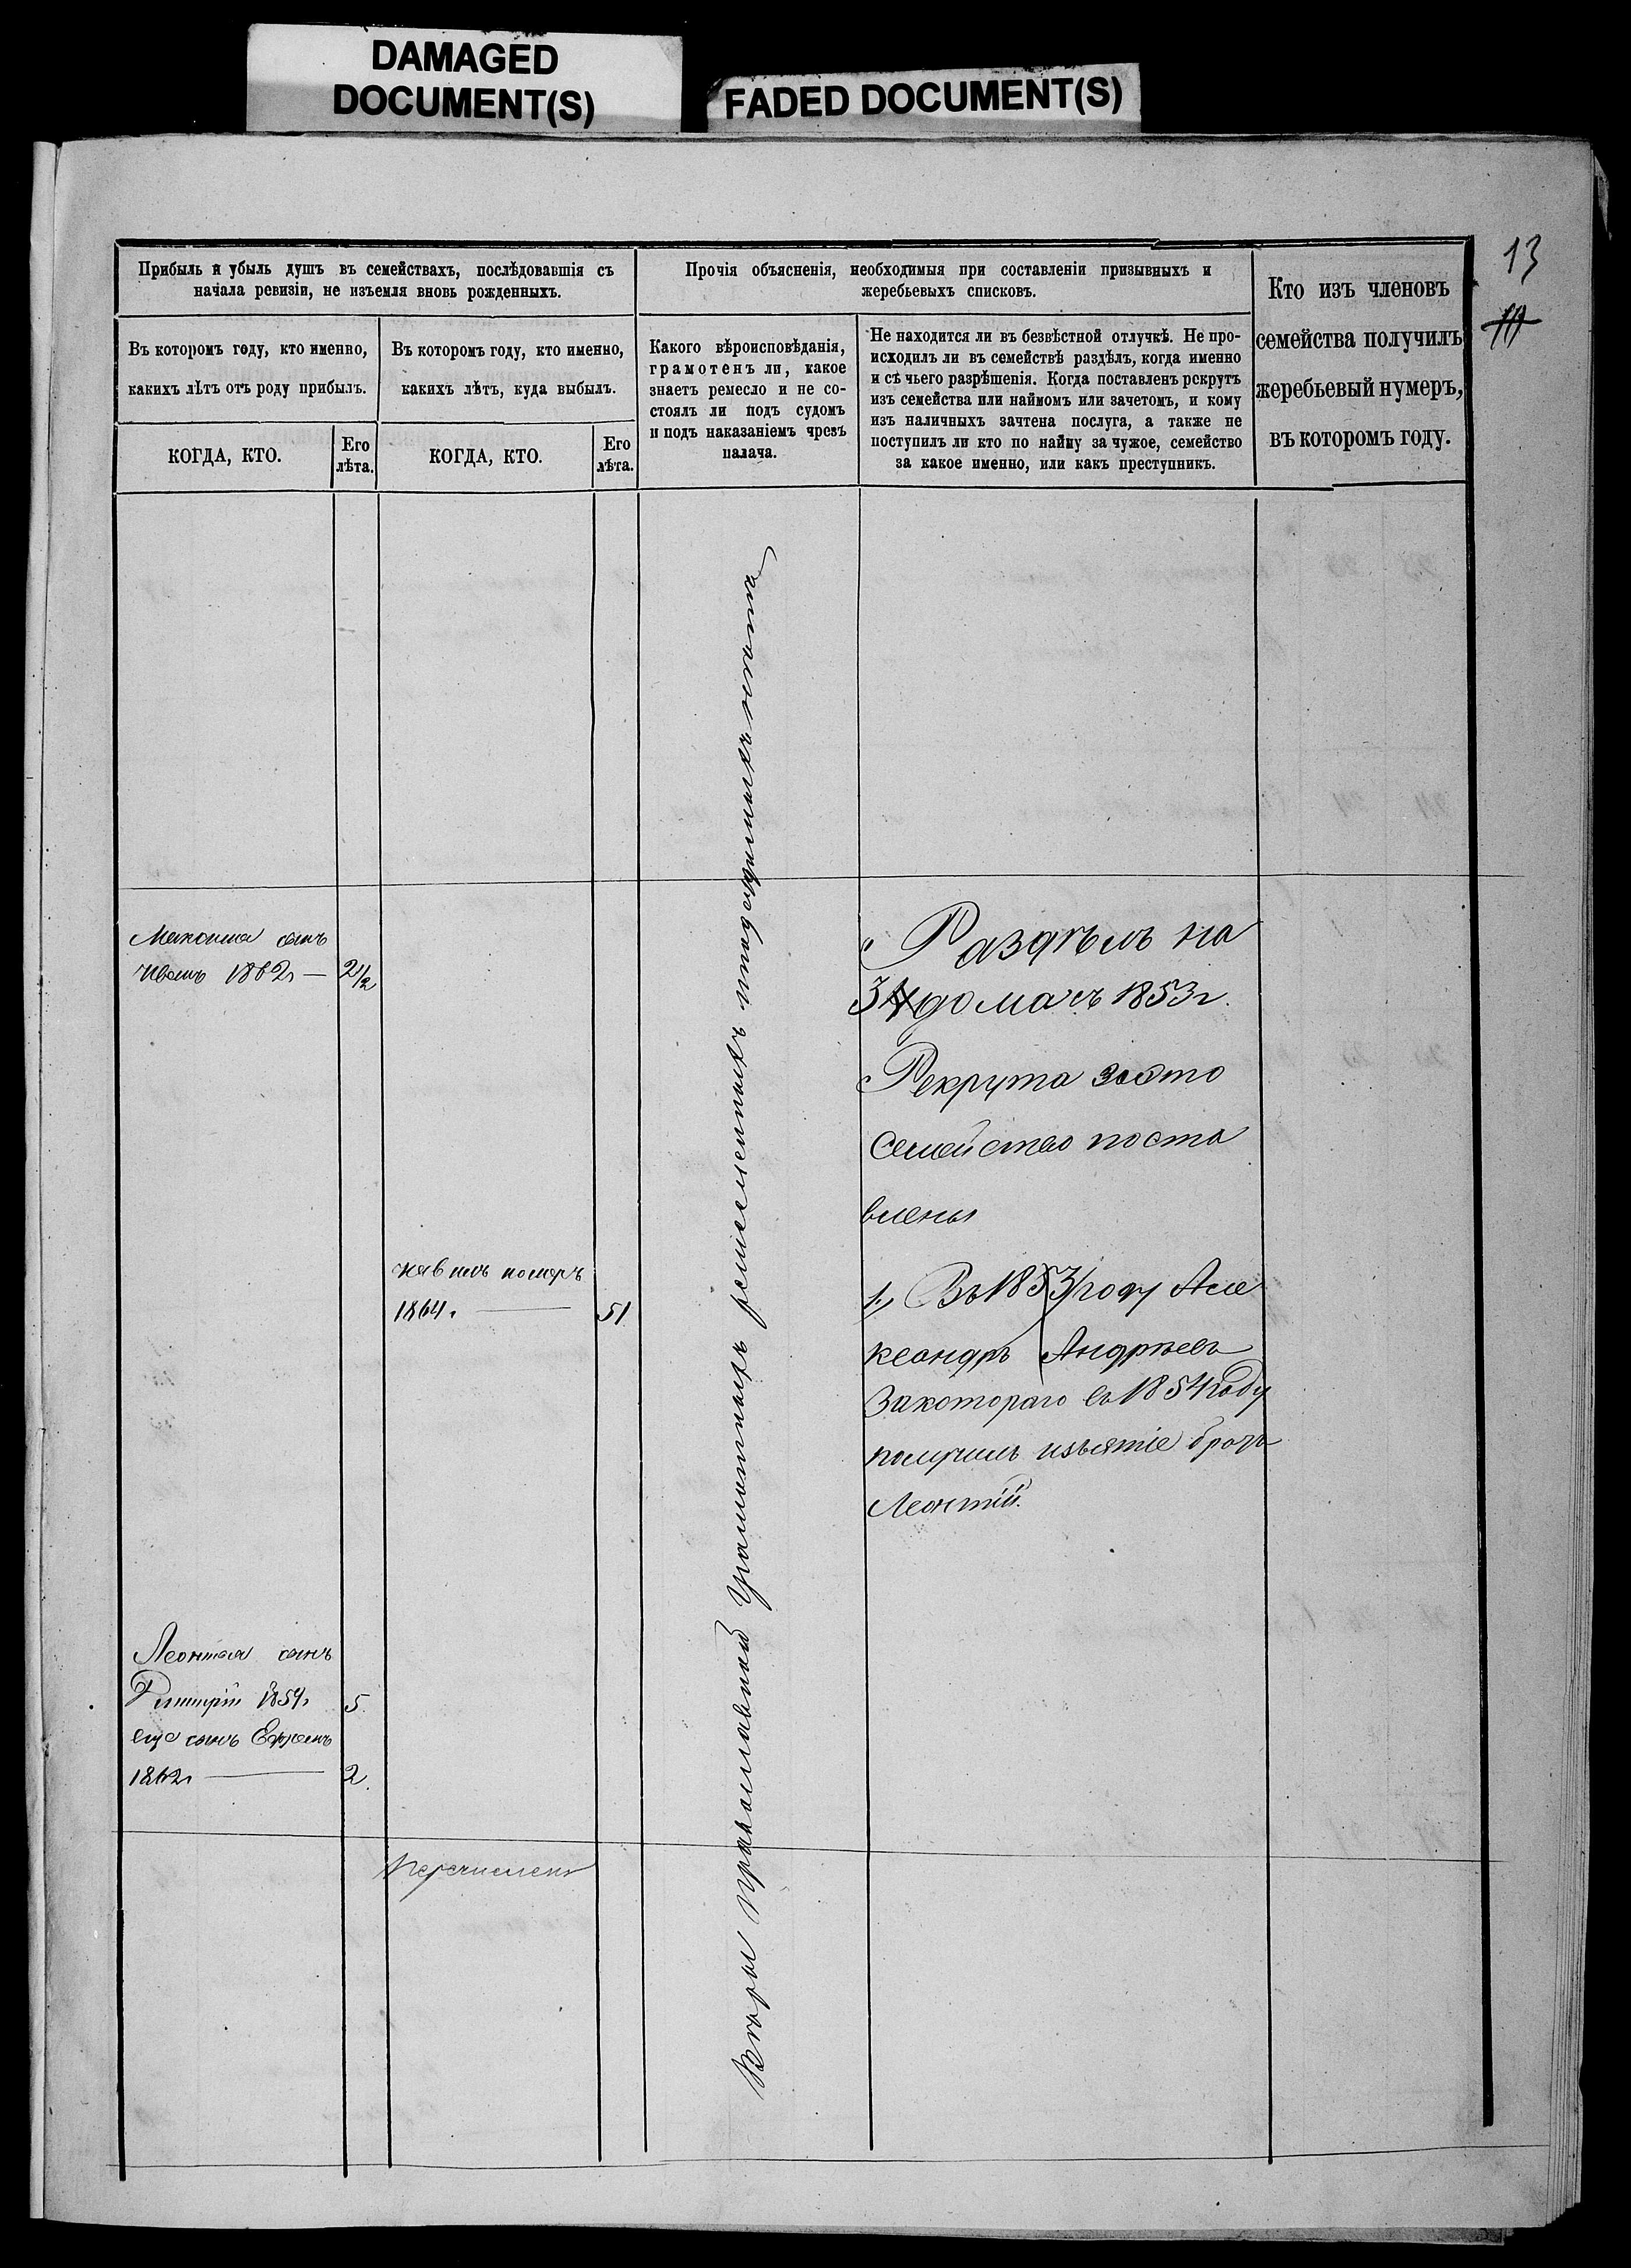 DAMAGED
DOCUMENT(S)
FADED DOCUMENT(S)
13
Прибыль и убыль душъ въ семействахъ, послѣдовавшія съ
начала ревизіи, не изъемля вновь рожденныхъ.
Прочія объясненія, необходимыя при составленіи призывныхъ и
жеребьевыхъ списковъ.
Кто изъ членовъ
семейства получилъ
жеребьевый нумеръ,
въ которомъ году.
Въ которомъ году, кто именно,
какихъ лѣтъ отъ роду прибылъ.
Въ которомъ году, кто именно,
какихъ лѣтъ, куда выбылъ.
Какого вѣроисповѣданія,
грамотенъ ли, какое
знаетъ ремесло и не со-
стоялъ ли подъ судомъ
и подъ наказаніемъ чрезъ
палача.
Не находится ли въ безвѣстной отлучкѣ. Не про-
исходилъ ли въ семействѣ раздѣлъ, когда именно
и съ чьего разрѣшенія. Когда поставленъ рекрутъ
изъ семейства или наймомъ или зачетомъ, и кому
изъ наличныхъ зачтена послуга, а также не
поступилъ ли кто по найму за чужое, семейство
за какое именно, или какъ преступникъ.
КОГДА, КТО.
Его
лѣта.
КОГДА, КТО.
Его
лѣта.
Максима сынъ
Иванъ 1862г — 2½
Раздѣлъ на
3 дома съ 1853г.
Рекрута за это
Семейство поста
влены
1, Въ 1853 году Але
ксандръ Андреевъ
За котораго въ 1854 году
получилъ изъятіе братъ
Леонтій.
померъ
1864г. — 51
Вѣры православной Грамотныхъ ремесленныхъ и подсудимыхъ нетъ
Леонтія сынъ
Дмитрій 1859г 5
еще сынъ
1862г — 2.
перечисленъ